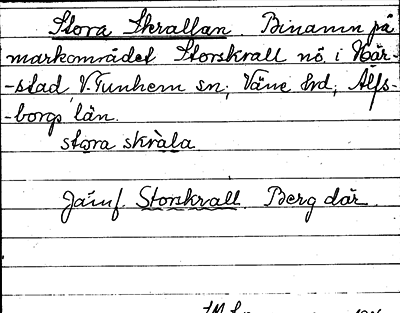 Stora Skrallan. Binamn på
markområdet Storskrall nö. i Här-
-stad V. Tunhem sn; Väne hd; Älfs-
-borgs län.
stora skràla
Jämf. Storskrall. Berg där.